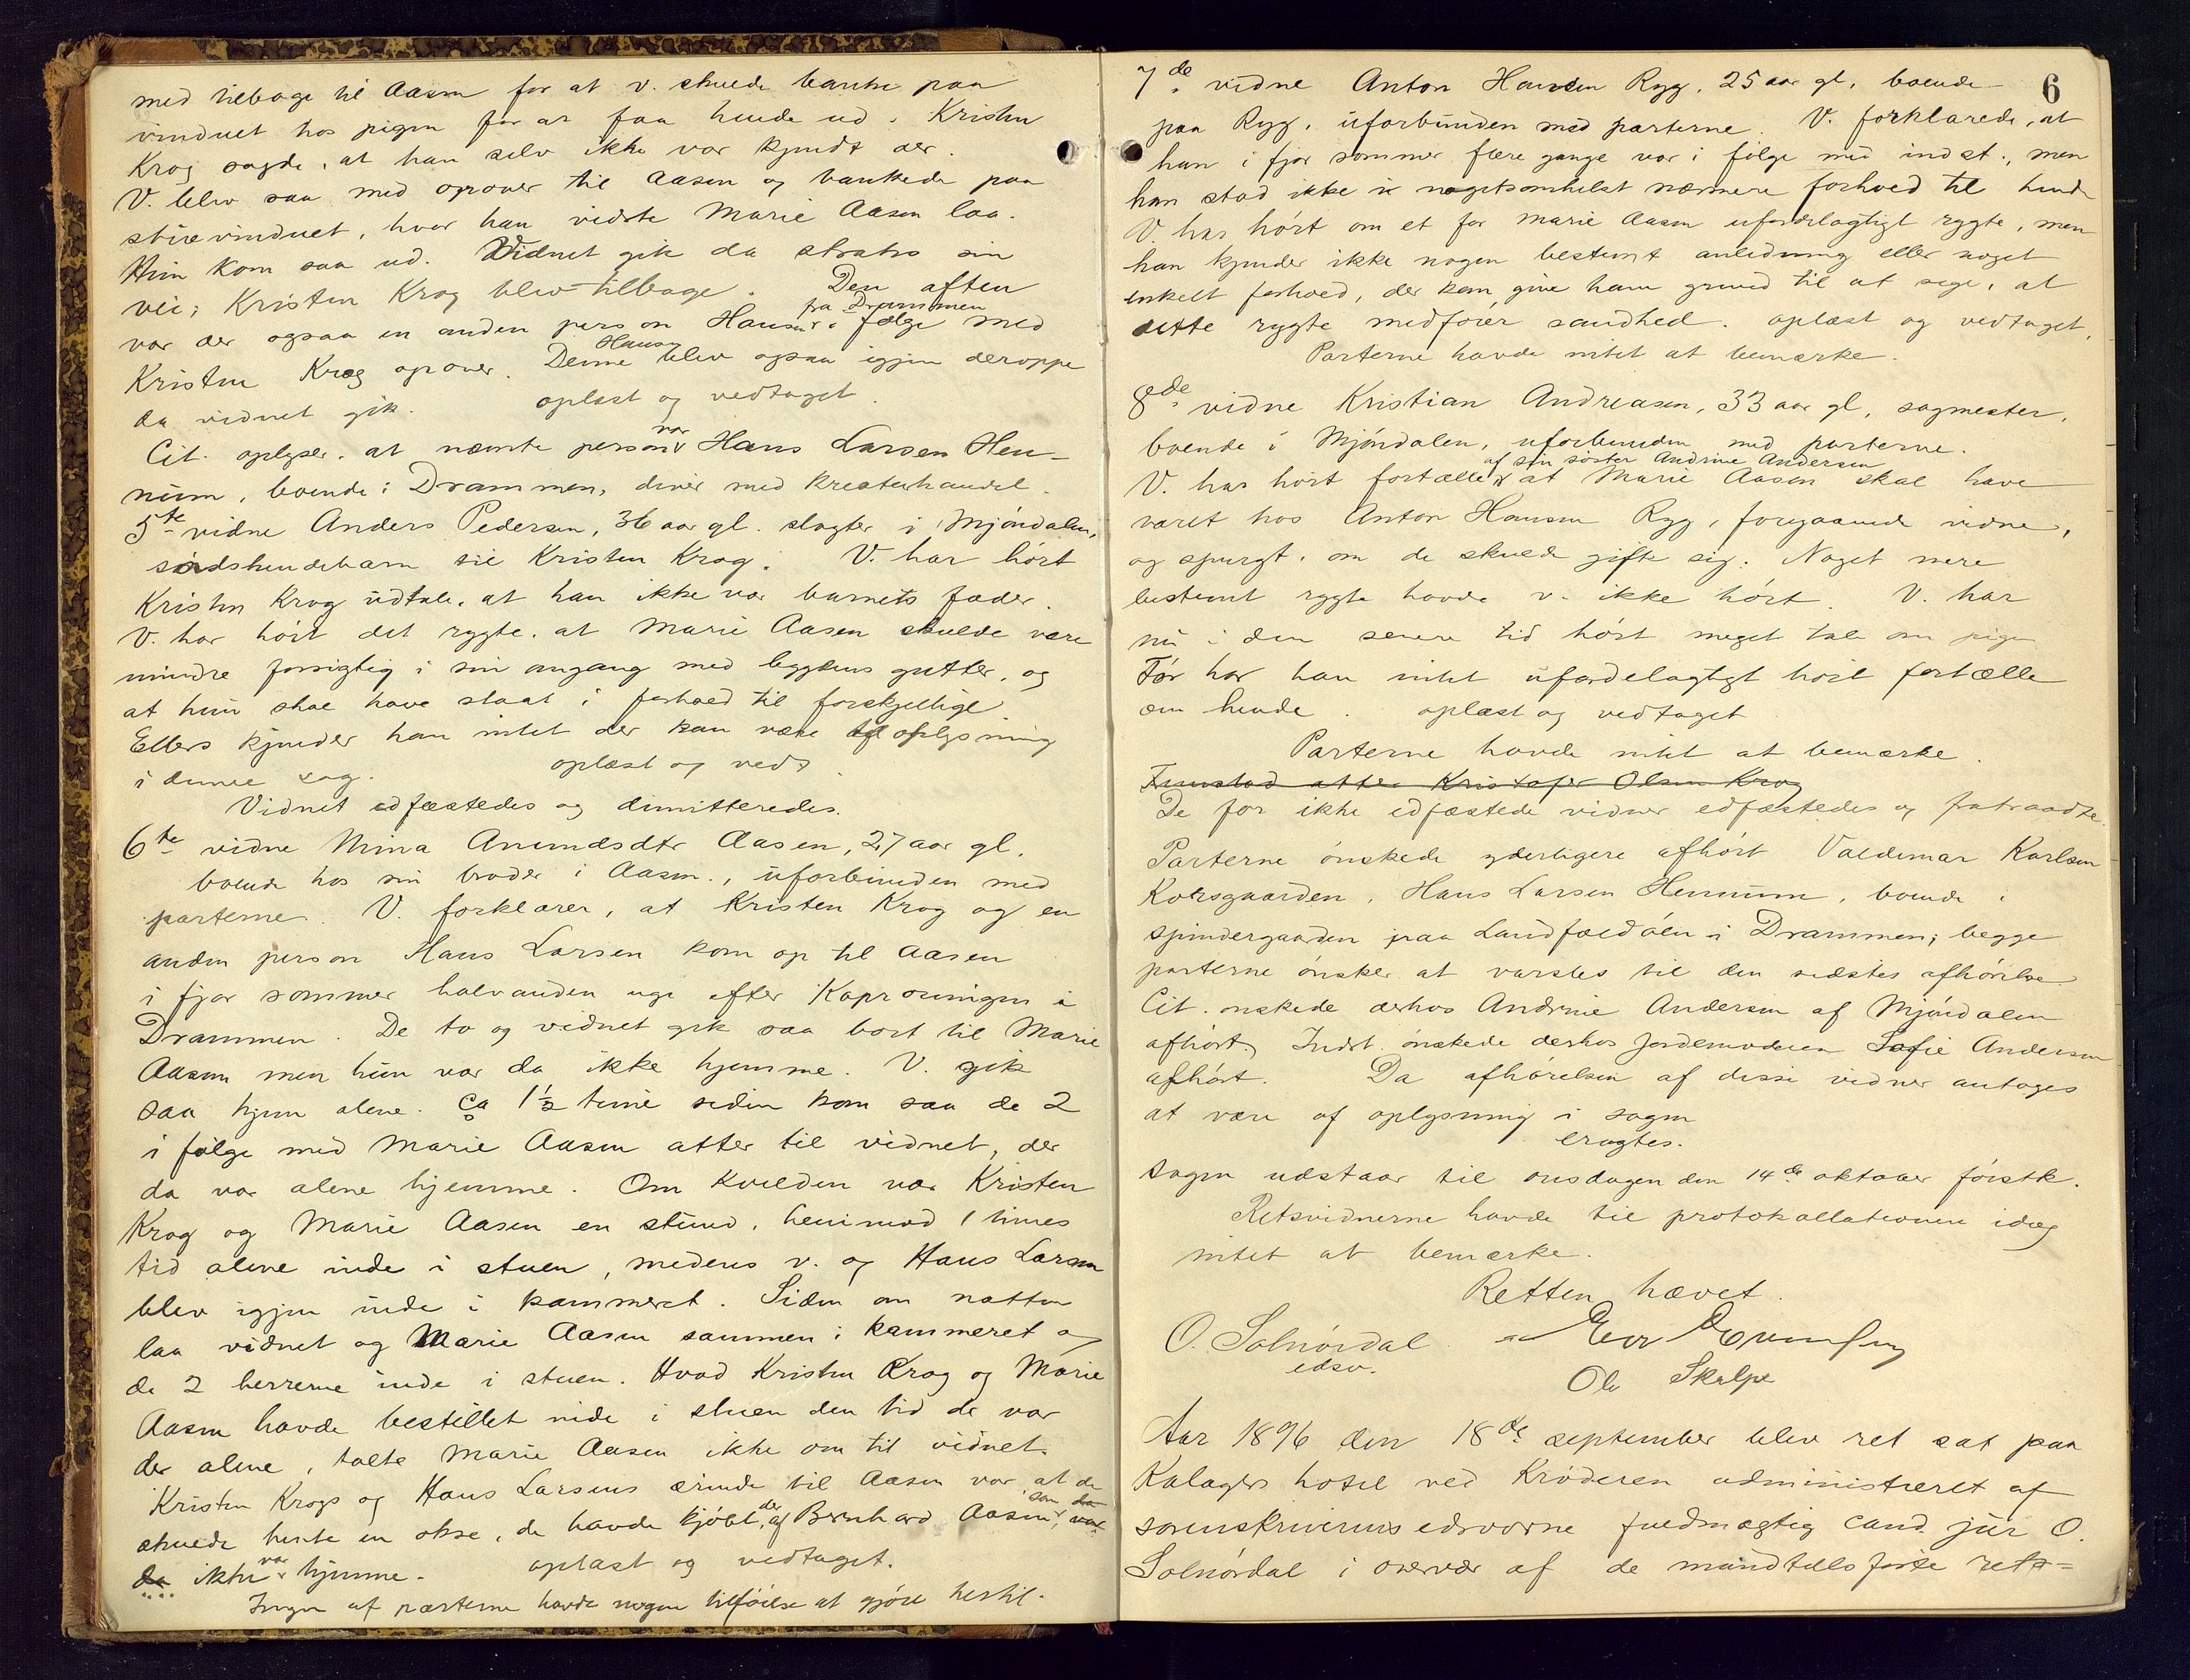 med tilbage til Aasen for at v. skulde banke paa
vinduet hos pigen for at faa hende ud. Kristen
Krog sagde, at han selv ikke var kjendt der.
V. blev saa med opover til Aasen og bankede paa
stuevinduet, hvor han vidste Marie Aasen laa.
Hun kom saa ud. Vidnet gik da straks sin
vei; Kristen Krog blev tilbage. Den aften
var der ogsaa en anden person Hans fra Drammen i følge med
Kristen Krog opover. Denne Hans blev ogsaa igjen deroppe
da vidnet gik. oplæst og vedtaget.
Cit. oplyser, at nævnte person var Hans Larsen Hen-
num, boende i Drammen, driver med kreaturhandel.
5te vidne Anders Pedersen, 36 aar gl. slagter i Mjøndalen,
sødskendebarn til Kristen Krog. V. har hørt
Kristen Krog udtale, at han ikke var barnets fader.
V. har hørt det rygte, at Marie Aasen skulde være
mindre forsigtig i sin omgang med bygdens gutter, og
at hun skal have staat i forhold til forskjellige
Ellers kjender han intet der kan være til oplysning
i denne sag. oplæst og vedt.
Vidnet edfæstedes og dimitteredes.
6te vidne Mina Amundsdtr Aasen, 27 aar gl.
boende hos sin broder i Aasen, uforbunden med
parterne. V. forklarer, at Kristen Krog og en
anden person Hans Larsen kom op til Aasen
i fjor sommer halvanden uge efter Kaproningen i
Drammen. De to og vidnet gik saa bort til Marie
Aasen men hun var da ikke hjemme. V. gik
saa hjem alene. Ca 1½ time siden kom saa de 2
i følge med Marie Aasen atter til vidnet, der
da var alene hjemme. Om kvelden var Kristen
Krog og Marie Aasen en stund, henimod 1 times
tid alene inde i stuen, medens v. og Hans Larsen
blev igjen inde i kammeret. Siden om natten
laa vidnet og Marie Aasen sammen i kammeret og
de 2 herrerne inde i stuen. Hvad Kristen Krog og Marie
Aasen havde bestillet inde i stuen den tid de var
der alene, talte Marie Aasen ikke om til vidnet.
Kristen Krogs og Hans Larsens ærinde til Aasen var, at de
skulde hente en okse, de havde kjøbt der af Bernhard Aasen, som var
da ikke var hjemme. oplæst og vedtaget.
Ingen af parterne havde nogen tilføielse at gjøre hertil.
6
7de vidne Anton Hansen Ryg, 25 aar gl, boende
paa Ryg, uforbunden med parterne. V. forklarede, at
han i fjor sommer flere gange var i følge med indst., men
han stod ikke i nogetsomhelst nærmere forhold til hende
V. har hørt om et for Marie Aasen ufordelagtigt rygte, men
han kjender ikke nogen bestemt anledning eller noget
enkelt forhold, der kan give ham grund til at sige, at
dette rygte medfører sandhed. oplæst og vedtaget.
Parterne havde intet at bemærke.
8de vidne Kristian Andreasen, 33 aar gl, sagmester,
boende i Mjøndalen, uforbunden med parterne.
V. har hørt fortælle af sin søster Andrine Andersen at Marie Aasen skal have
været hos Anton Hansen Ryg, foregaaende vidne,
og spurgt, om de skulde gifte sig. Noget mere
bestemt rygte havde v. ikke hørt. V. har
nu i den senere tid hørt meget tale om pigen
Før har han intet ufordelagtigt hørt fortælle
om hende. oplæst og vedtaget
Parterne havde intet at bemærke.
Fremstod atter Kristofer Olsen Krog
De før ikke edfæstede vidner edfæstedes og fratraadte.
Parterne ønskede yderligere afhørt Valdemar Karlsen
Korsgaarden, Hans Larsen Hennum, boende i
Spindergaarden paa Landfaldøen i Drammen; begge
parterne ønsker at varsles til den sidstes afhørelse.
Cit. ønskede derhos Andrine Andersen af Mjøndalen
afhørt. Indst. ønskede derhos jordemoderen Sofie Andersen
afhørt. Da afhørelsen af disse vidner antages
at være af oplysning i sagen
eragtes.
Sagen udstaar til onsdagen den 14de oktober førstk.
Retsvidnerne havde til protokollationen idag
intet at bemærke.
Retten hævet.
O. Solnørdal
edsv.
Ole Skalpe
Aar 1896 den 18de september blev ret sat paa
Kalagers hotel ved Krøderen administreret af
sorenskriverens edsvorne fuldmægtig cand. jur O.
Solnørdal i overvær af de mandtalsførte rets=